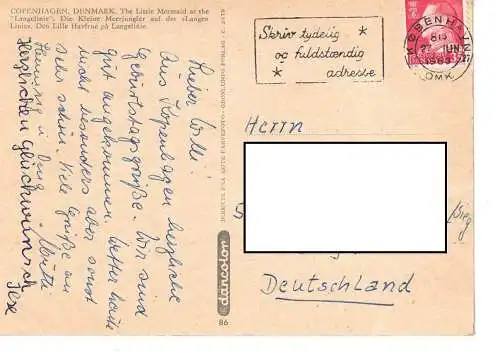 COPENHAGEN, DENMARK. The Little Mermaid at the
"Langelinie". Die Kleine Meerjungfer auf der «Langen
Linie». Den Lille Havfrue på Langelinie.
Lieber Willi!
Aus Kopenhagen herzliche
Geburtstagsgrüße. Wir sind
gut angekommen. Wetter heute
nicht besonders aber sonst
sehr schön. Viele Grüße an
Hennig u. Inge
Mutti
Herzlichen Glückwunsch
dancolor
86
Skriv tydelig
og fuldstændig
adresse
KØBENHAVN
27
1963
OMK.
Herrn
/Sieg
Deutschland